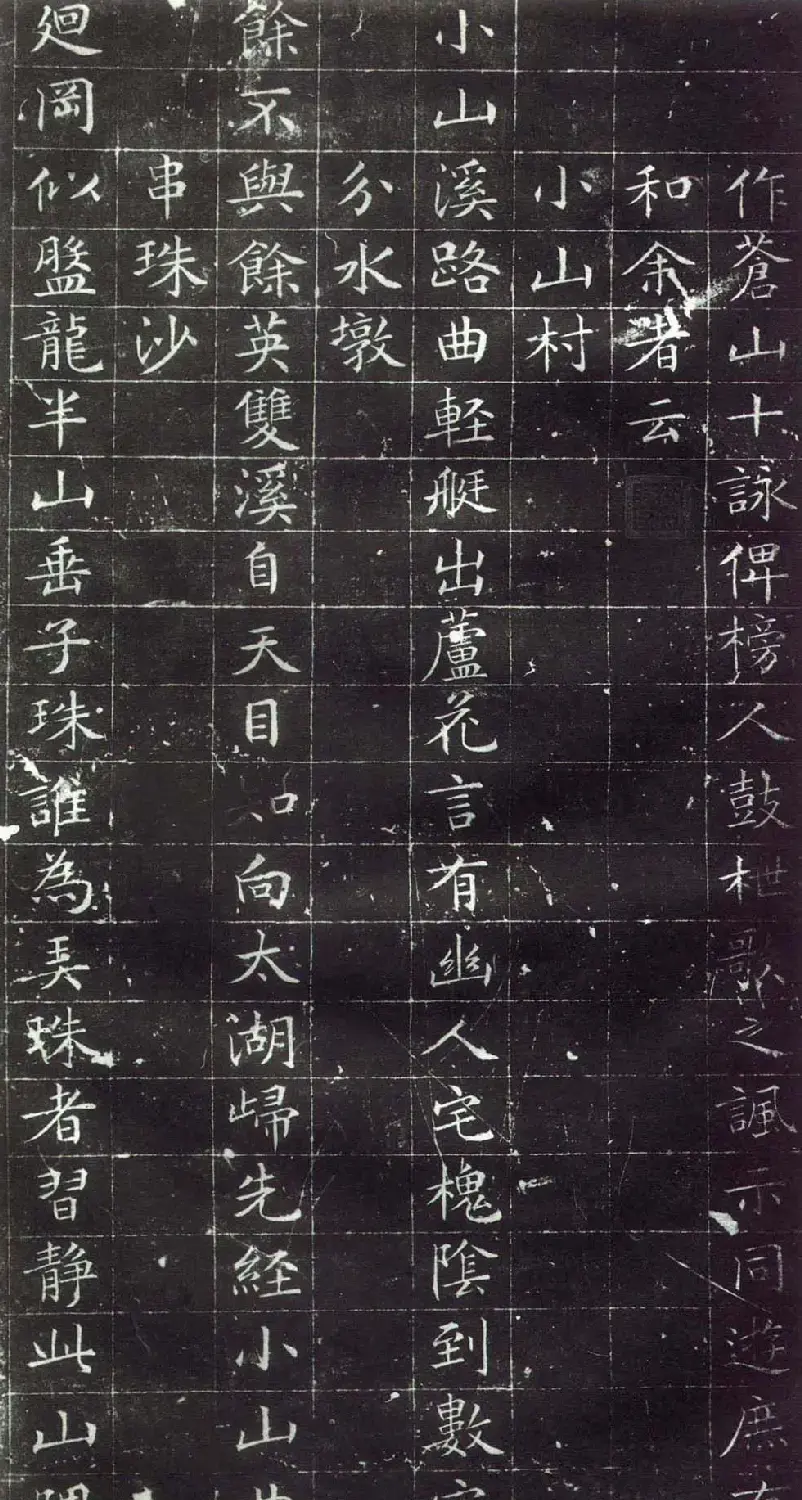 作蒼山十詠俾榜人鼓枻歌之諷示同遊庶
和余者云
小山村
小山溪路曲軽艇出蘆花言有幽人宅槐陰到數
分水墩
餘不與餘英雙溪自天目知向太湖歸先経小山
串珠沙
廻岡似盤龍半山垂子珠誰為弄珠者習静此山